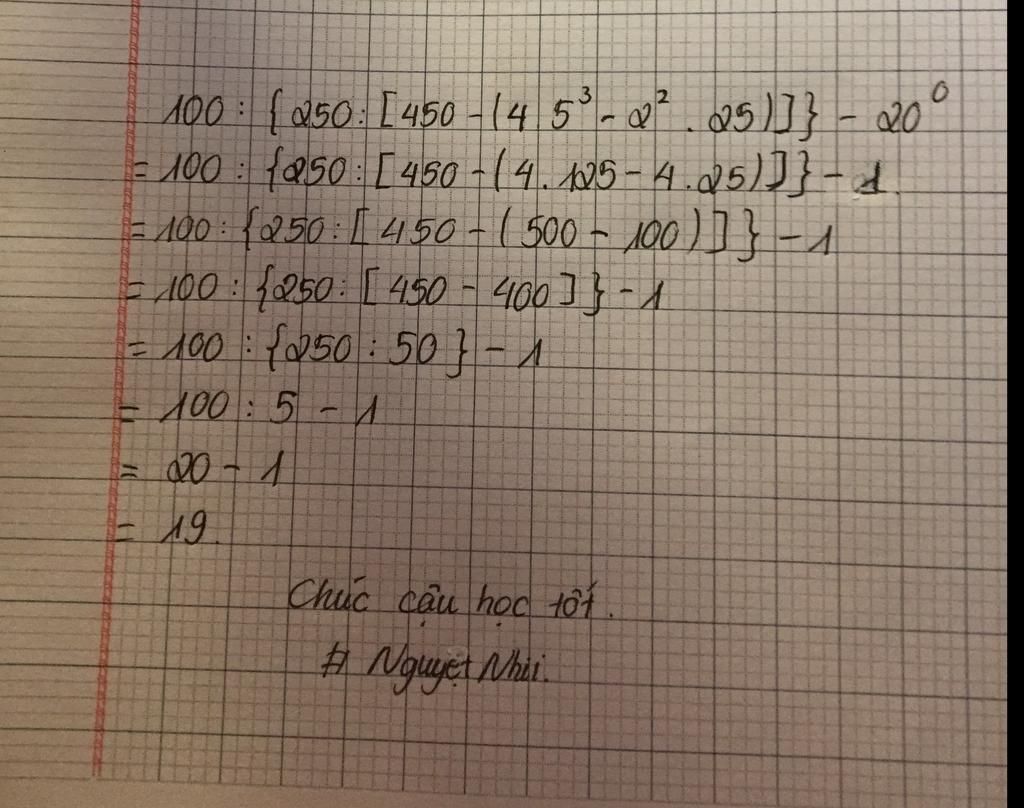 100 : { 250 : [ 450 - ( 4 5³ - 2² . 25 ) ] } - 20⁰
= 100 : { 250 : [ 450 - ( 4 . 125 - 4 . 25 ) ] } - 1.
= 100 : { 250 : [ 450 - ( 500 - 100 ) ] } - 1
= 100 : { 250 : [ 450 - 400 ] } - 1
= 100 : { 250 : 50 } - 1
= 100 : 5 - 1
= 20 - 1
= 19.
Chúc cậu học tốt.
# Nguyệt Nhi.